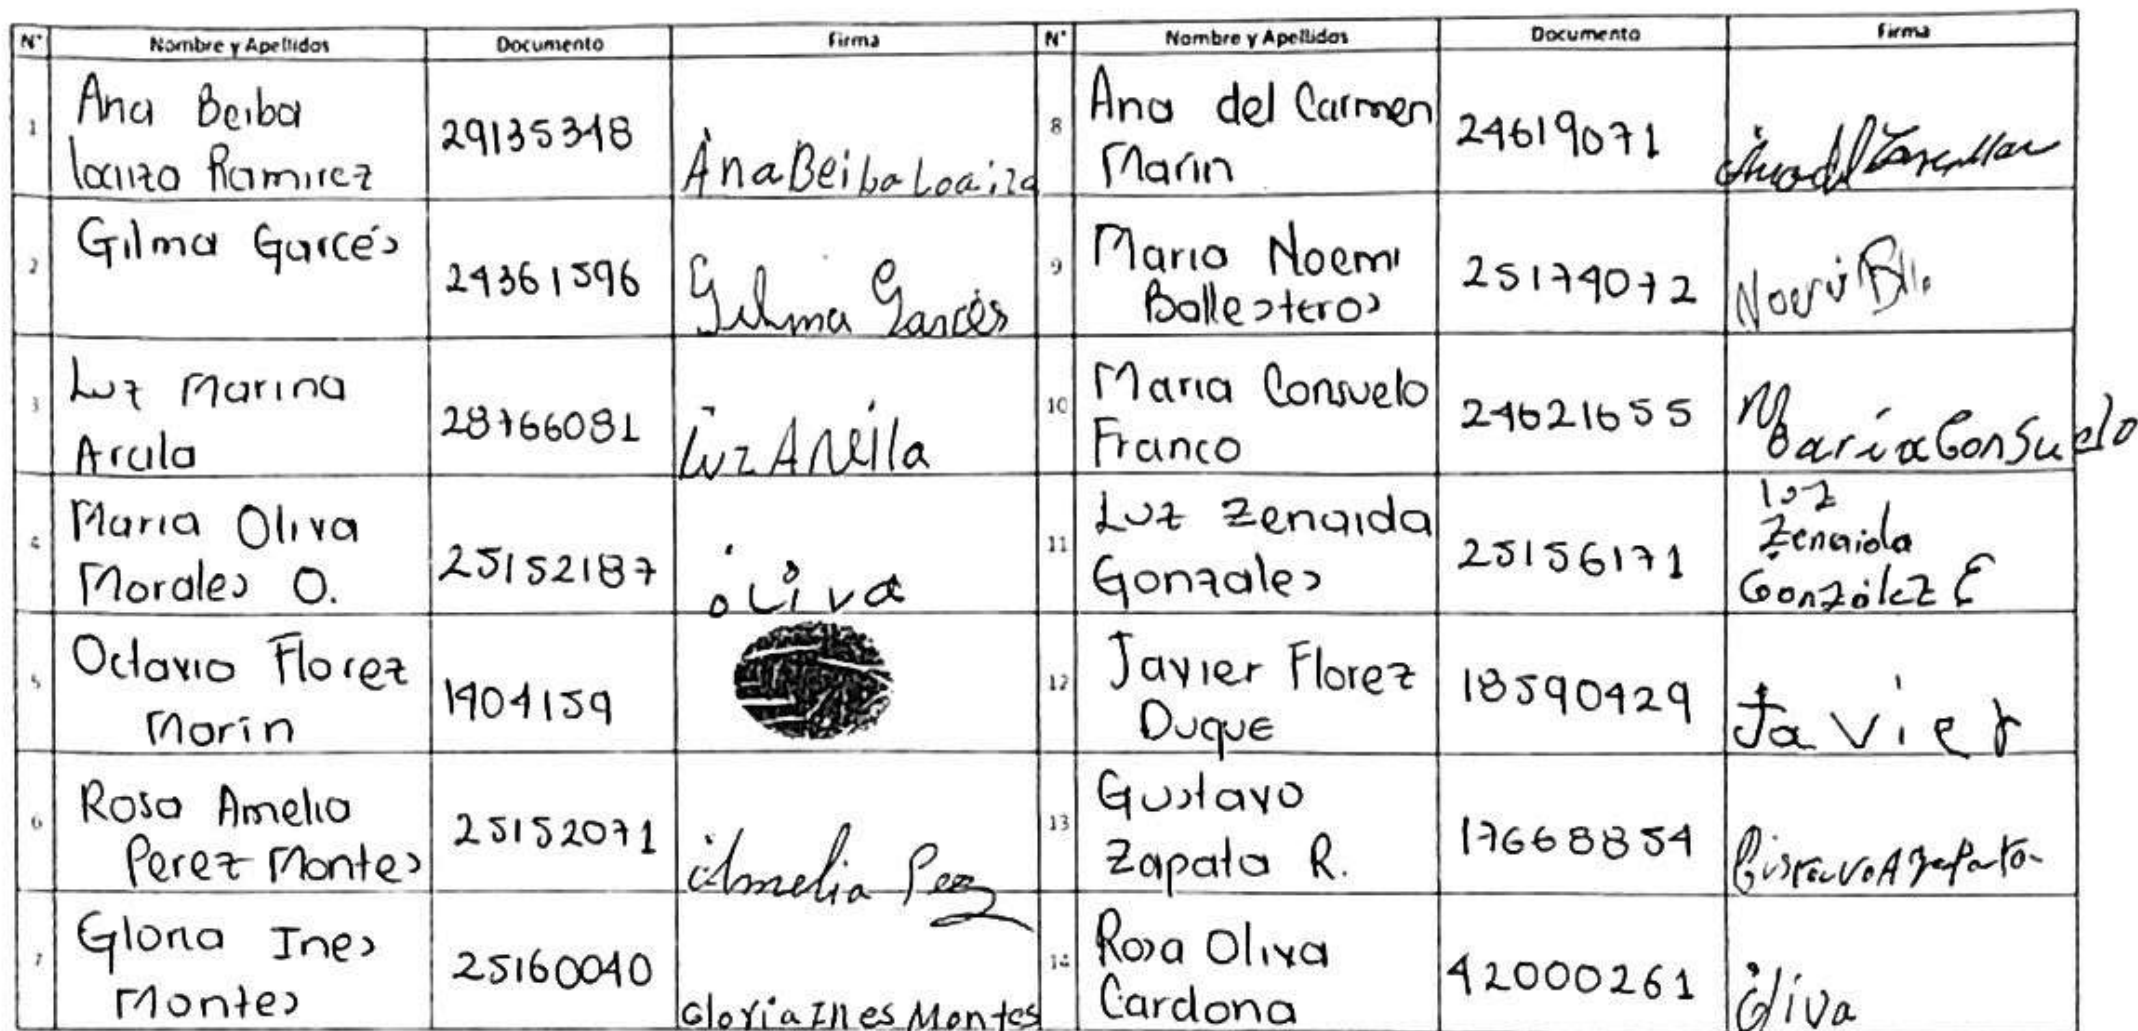 N° Nombre y Apellidos Documento Firma N° Nombre y Apellidos Documento Firma
1 Ana Beiba
Loaiza Ramirez 29135348 Ana Beiba Loaiza
8 Ana del Carmen
Marin 24619071
2 Gilma Garcés 24361596 Gilma Garcés
9 Maria Noemi
Ballesteros 25174072 Noemi Blle
3 Luz Marina
Arcila 28766081 Luz Arcila
10 Maria Consuelo
Franco 24621655 Maria Consuelo
4 Maria Oliva
Morales O. 25152187 oliva
11 Luz Zenaida
Gonzales 25156171 Luz
Zenaida
González E
5 Octavio Florez
Marin 1404159
12 Javier Florez
Duque 18590429 Javier
6 Rosa Amelia
Perez Montes 25152071 Amelia Perez
13 Gustavo
Zapata R. 17668854 Gustavo A Zapata
7 Gloria Ines
Montes 25160040 Gloria Ines Montes
14 Rosa Oliva
Cardona 42000261 Oliva